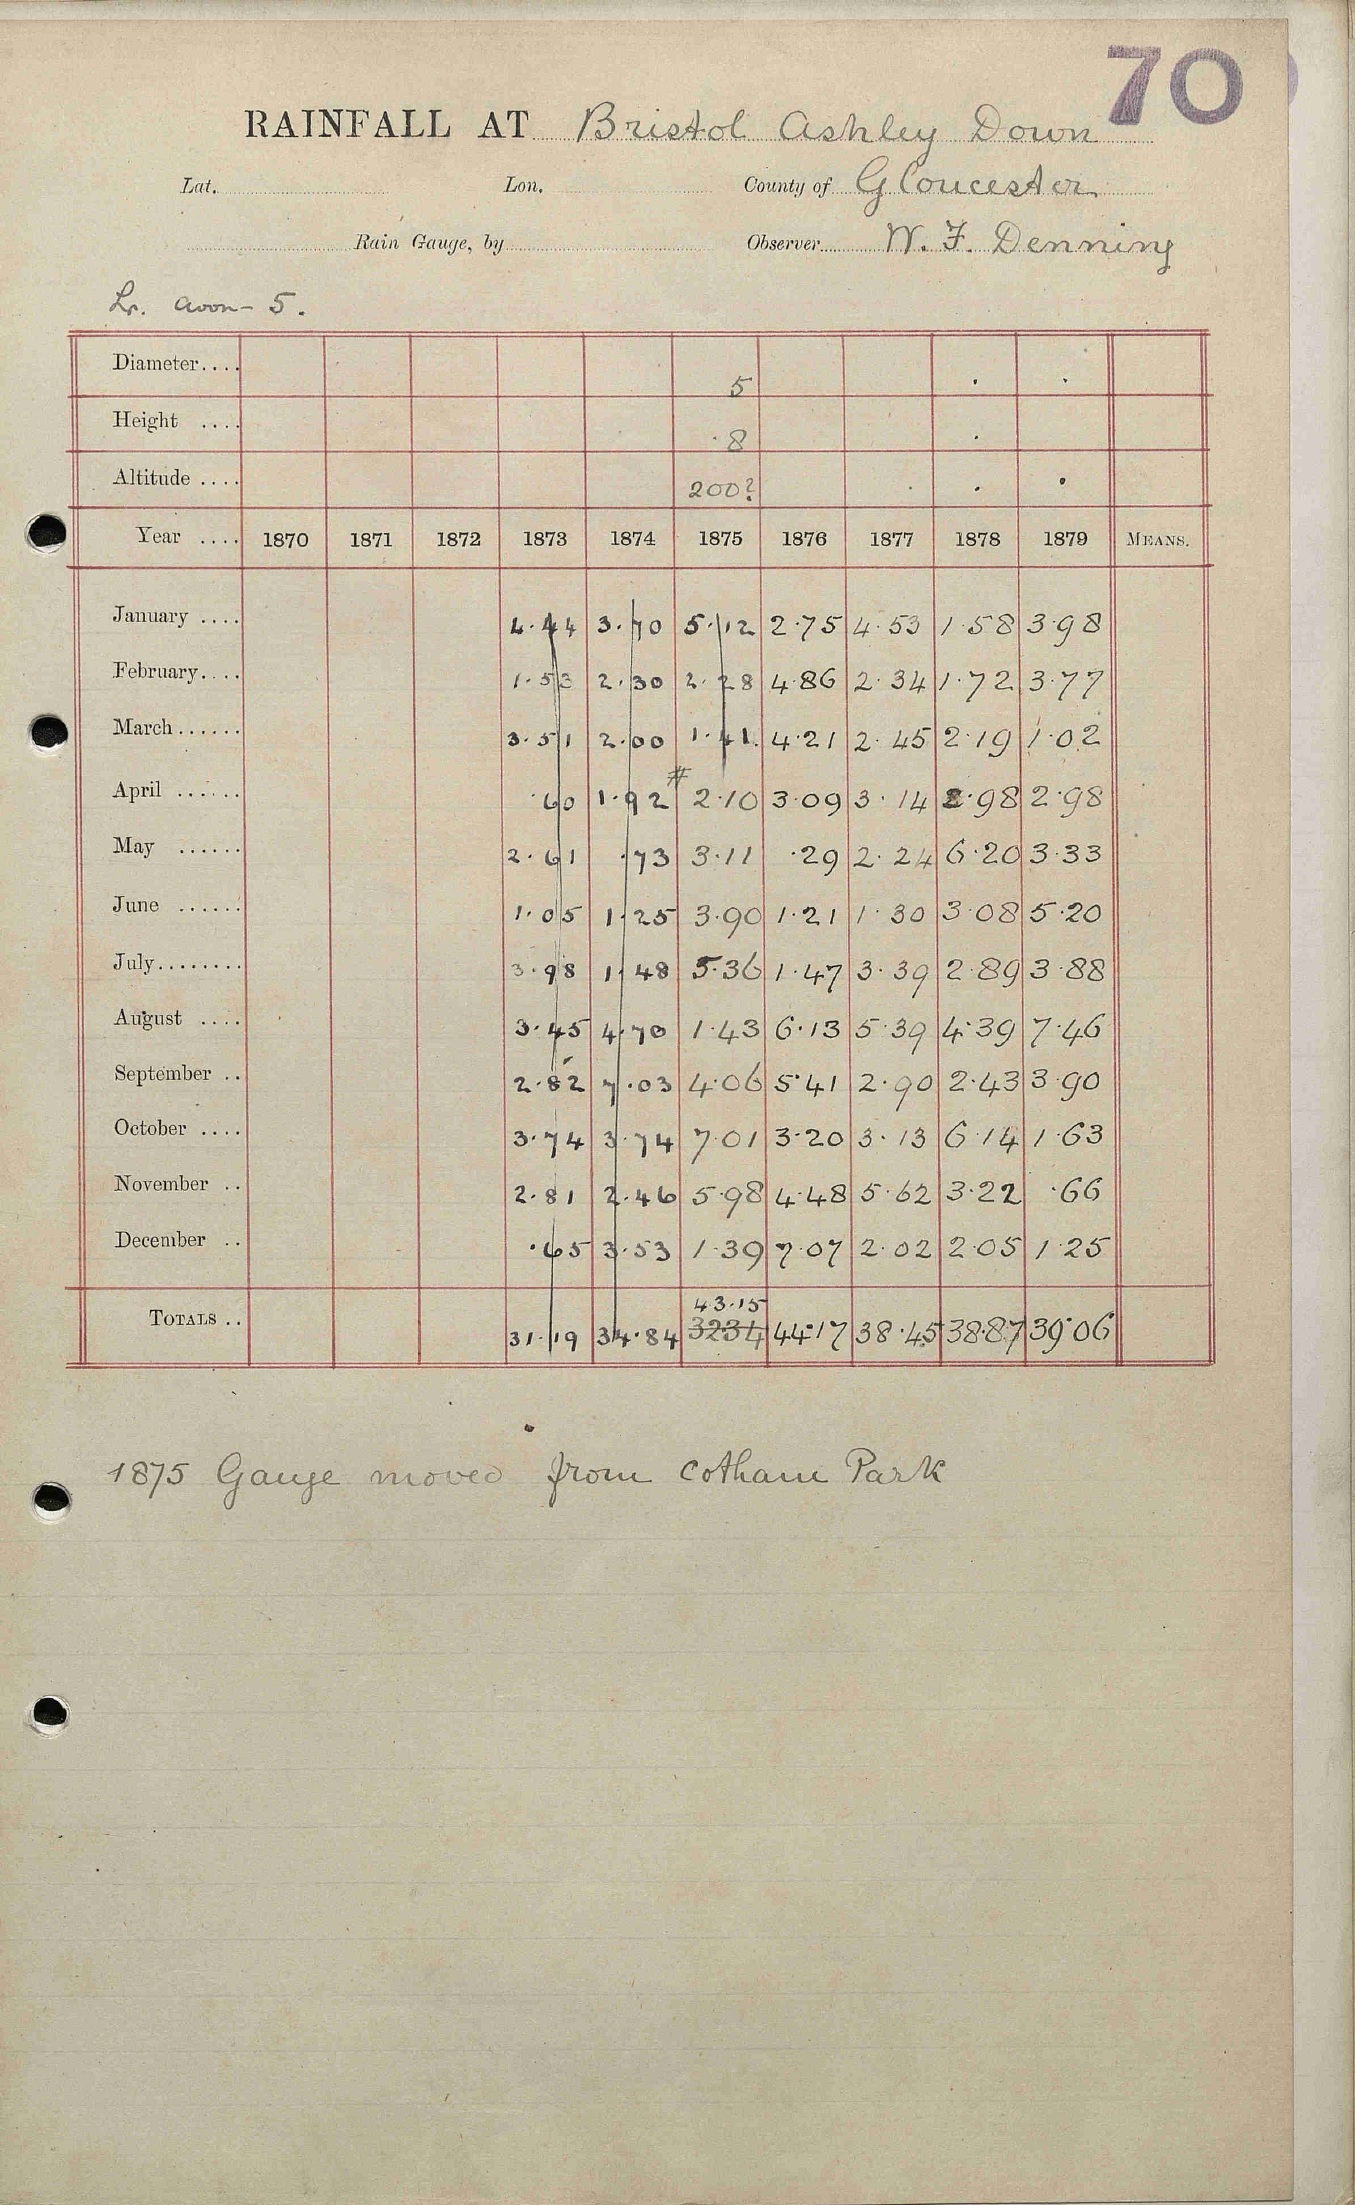 70
RAINFALL AT Bristol Ashley Down
Lat. Lon. County of Gloucester
Rain Gauge, by Observer W. F. Denning
Lr. Avon - 5.
Diameter.... 5
Height .... .8
Altitude .... 200?
Year .... 1870 1871 1872 1873 1874 1875 1876 1877 1878 1879 MEANS.
January .... 4.44 3.70 5.12 2.75 4.53 1.58 3.98
February.... 1.53 2.30 2.28 4.86 2.34 1.72 3.77
March...... 3.51 2.00 1.41 4.21 2.45 2.19 1.02
#
April ...... .60 1.92 2.10 3.09 3.14 2.98 2.98
May ...... 2.61 .73 3.11 .29 2.24 6.20 3.33
June ...... 1.05 1.25 3.90 1.21 1.30 3.08 5.20
July........ 3.98 1.48 5.36 1.47 3.39 2.89 3.88
August .... 3.45 4.70 1.43 6.13 5.39 4.39 7.46
September .. 2.82 7.03 4.06 5.41 2.90 2.43 3.90
October .... 3.74 3.74 7.01 3.20 3.13 6.14 1.63
November .. 2.81 2.46 5.98 4.48 5.62 3.22 .66
December .. .65 3.53 1.39 7.07 2.02 2.05 1.25
43.15
TOTALS .. 31.19 34.84 3234 44.17 38.45 38.87 39.06
1875 Gauge moved from Cotham Park